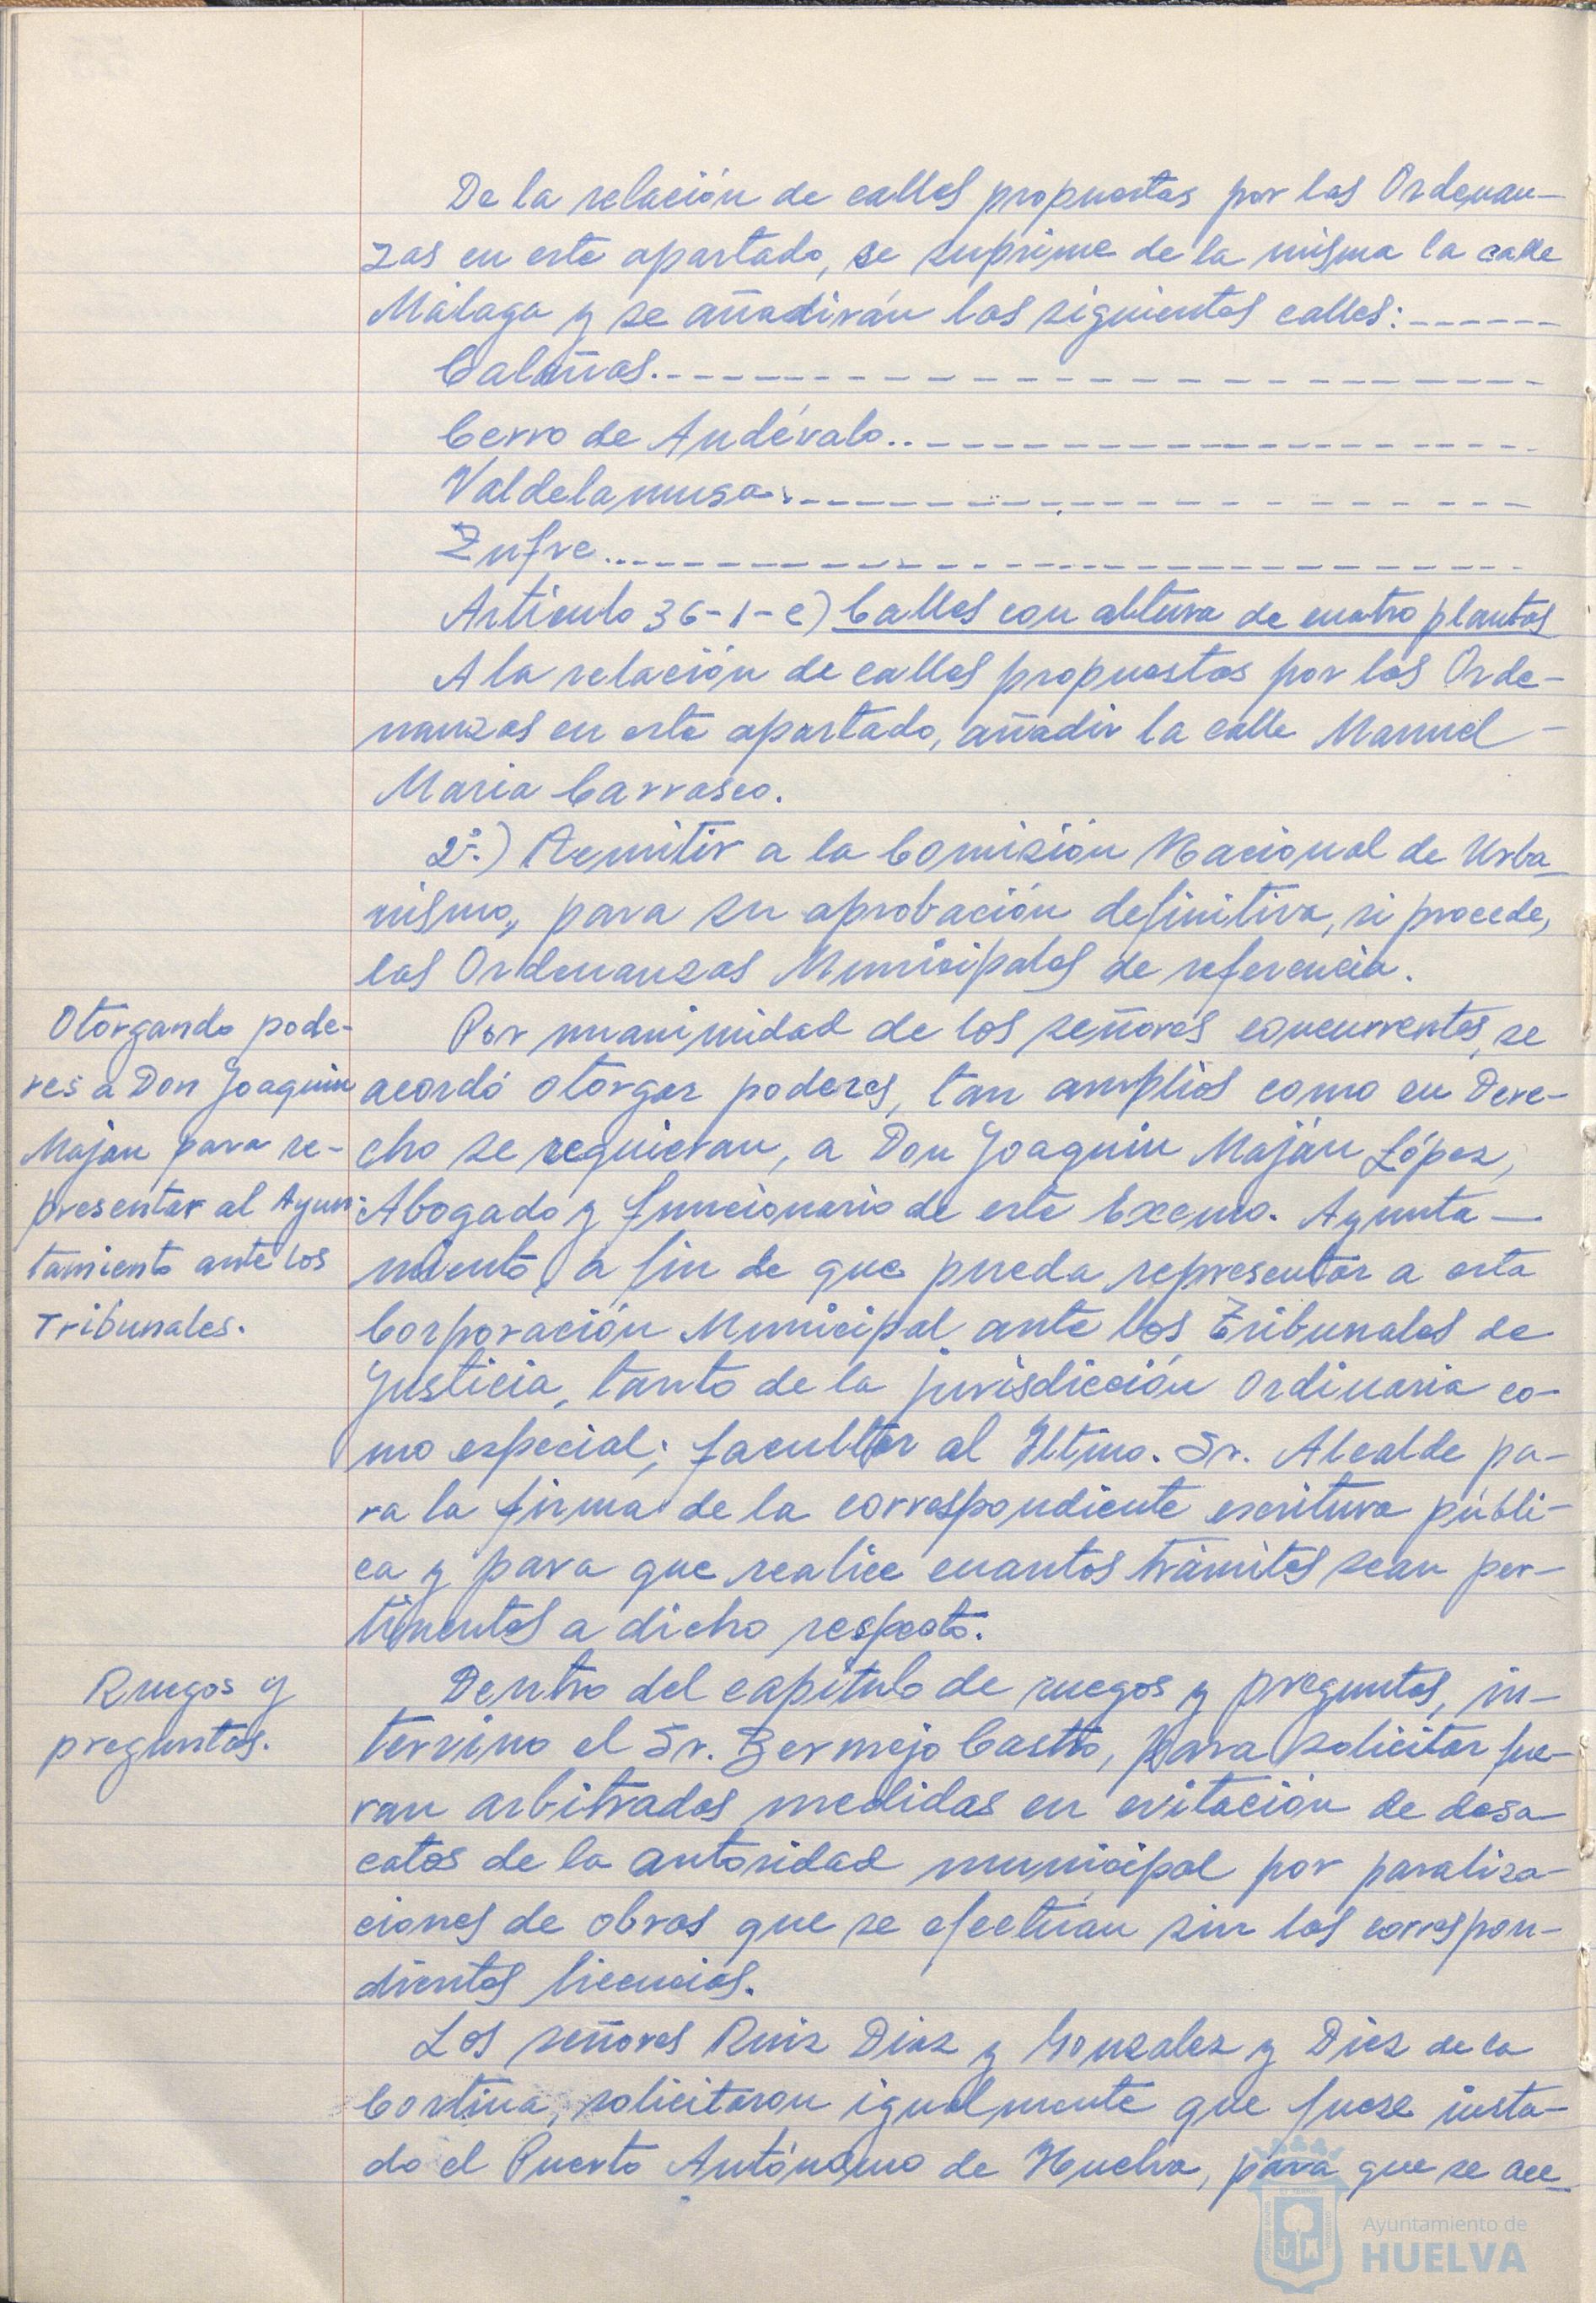 De la relación de calles propuestas por las Ordenan-
zas en este apartado, se suprime de la misma la calle
Málaga y se añadirán las siguientes calles:------
Calañas.------------------
Cerro de Andévalo..------------------
Valdelamusa.------------------
Zufre.------------------
Artículo 36-1-e) Calles con altura de cuatro plantas
A la relación de calles propuestas por las Orde-
nanzas en este apartado, añadir la calle Manuel -
Maria Carrasco.
2º.) Remitir a la Comisión Nacional de Urba-
nismo, para su aprobación definitiva, si procede,
las Ordenanzas Municipales de referencia.
Otorgando pode-
res a Don Joaquin
Maján para re-
presentar al Ayun-
tamiento ante los
Tribunales.
Por unanimidad de los señores concurrentes, se
acordó otorgar poderes, tan amplios como en Dere-
cho se requieran, a Don Joaquin Maján López,
Abogado y funcionario de este Excmo. Ayunta-
miento, a fin de que pueda representar a esta
Corporación Municipal ante los Tribunales de
Justicia, tanto de la jurisdicción Ordinaria co-
mo especial; facultar al Iltmo. Sr. Alcalde pa-
ra la firma de la correspondiente escritura públi-
ca y para que realice cuantos trámites sean per-
tinentes a dicho respecto.
Ruegos y
preguntas.
Dentro del capítulo de ruegos y preguntas, in-
tervino el Sr. Bermejo Castro, para solicitar fue-
ran arbitradas medidas en evitación de desa-
catos de la autoridad municipal por paraliza-
ciones de obras que se efectúan sin las correspon-
dientes licencias.
Los señores Ruiz Diaz y Gonzalez y Diez de la
Cortina, solicitaron igualmente que fuese insta-
do el Puerto Autónomo de Huelva, para que se ace-
Ayuntamiento de
HUELVA